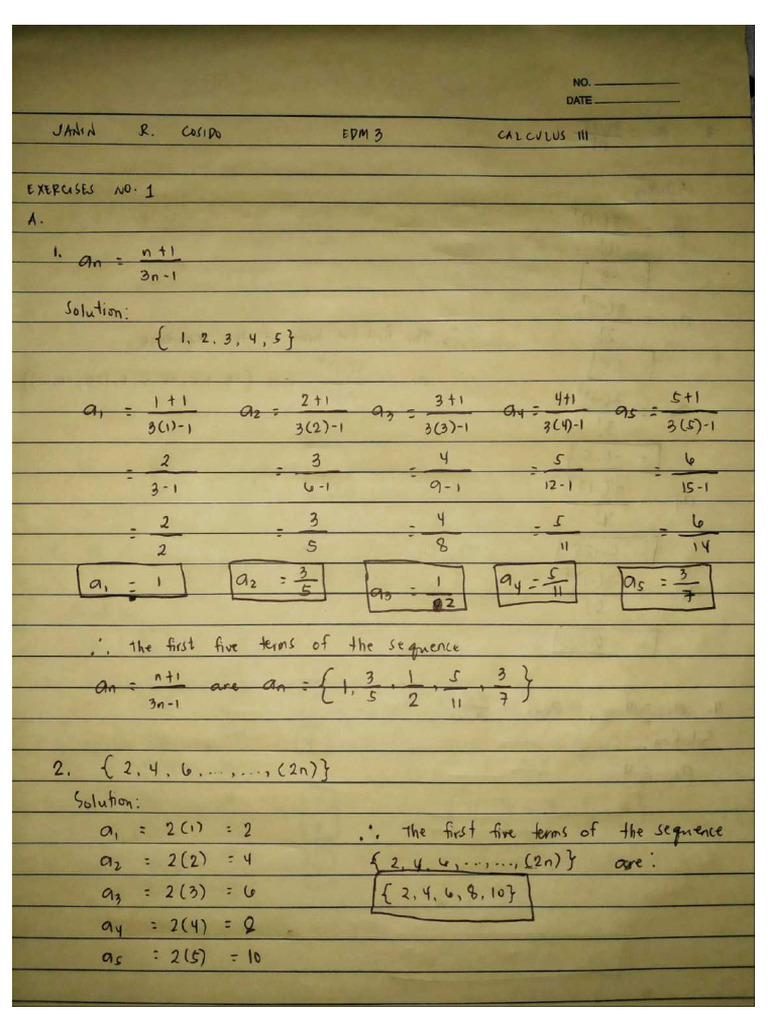 NO.
DATE
JANIN R. COSIDO EDM 3 CALCULUS III
EXERCISES NO. 1
A.
1. an = n+1 / 3n-1
Solution:
{ 1, 2, 3, 4, 5}
a1 = 1+1 / 3(1)-1 a2 = 2+1 / 3(2)-1 a3 = 3+1 / 3(3)-1 a4 = 4+1 / 3(4)-1 a5 = 5+1 / 3(5)-1
= 2 / 3-1 = 3 / 6-1 = 4 / 9-1 = 5 / 12-1 = 6 / 15-1
= 2 / 2 = 3 / 5 = 4 / 8 = 5 / 11 = 6 / 14
a1 = 1 a2 = 3/5 a3 = 1/2 a4 = 5/11 a5 = 3/7
∴ The first five terms of the sequence
an = n+1 / 3n-1 are an = {1, 3/5, 1/2, 5/11, 3/7}
2. { 2, 4, 6, ..., ..., (2n)}
Solution:
a1 = 2(1) = 2 ∴ The first five terms of the sequence
a2 = 2(2) = 4 { 2, 4, 6, ..., ..., (2n)} are:
a3 = 2(3) = 6 { 2, 4, 6, 8, 10}
a4 = 2(4) = 8
a5 = 2(5) = 10